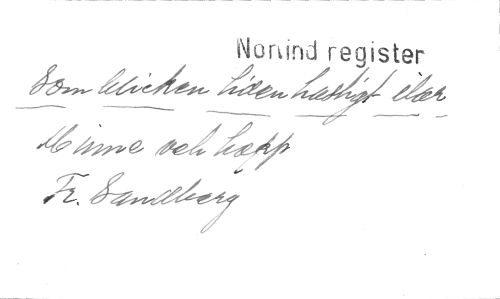 Norlind register
Som blicken tiden hastigt ilar
Minne och hopp
Fr. Sandberg